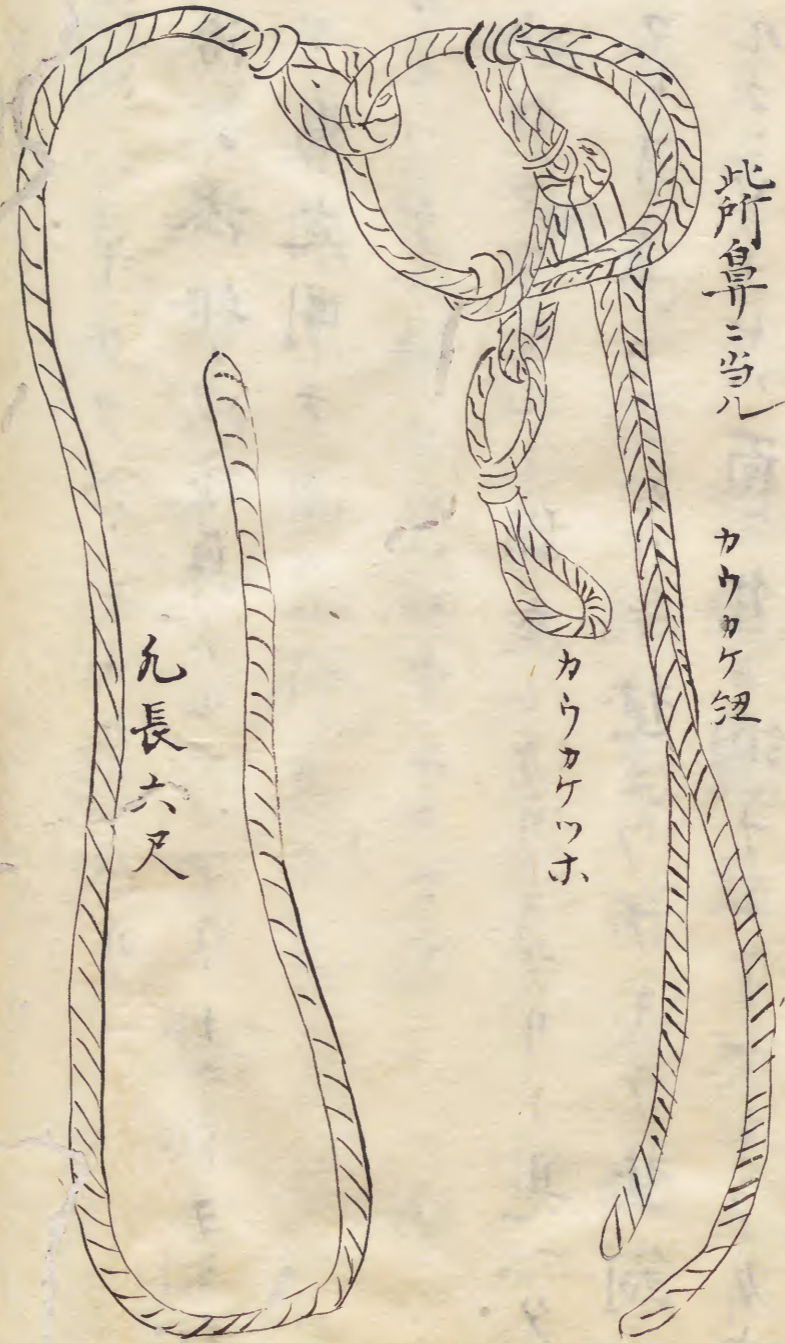 此所鼻ニ当ル
カウカケ紐
カウカケツホ
凡長六尺